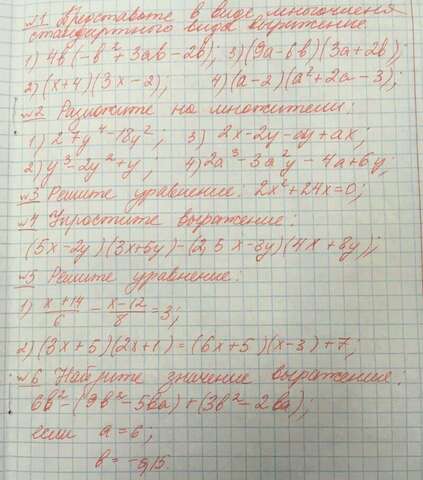 №1 Представьте в виде многочлена
стандартного вида выражение
1) 4b(-b²+3ab-2b); 3) (9a-6b)(3a+2b);
2) (x+4)(3x-2); 4) (a-2)(a²+2a-3);
№2 Разложите на множители:
1) 2⁴y⁴-18y²; 3) 2x-2y-ay+ax;
2) y³-2y²+y; 4) 2a³-3a²y-4a+6y;
№3 Решите уравнение: 2x²+24x=0;
№4 Упростите выражение:
(5x-2y)(3x+5y)-(2,5x-3y)(4x+8y);
№5 Решите уравнение:
1) x+14/6 - x-12/8 = 3;
2) (3x+5)(2x+1)=(6x+5)(x-3)+7;
№6 Найдите значение выражения:
6b²-(9b²-5ba)+(3b²-2ba);
если a=6;
b=-0,15.